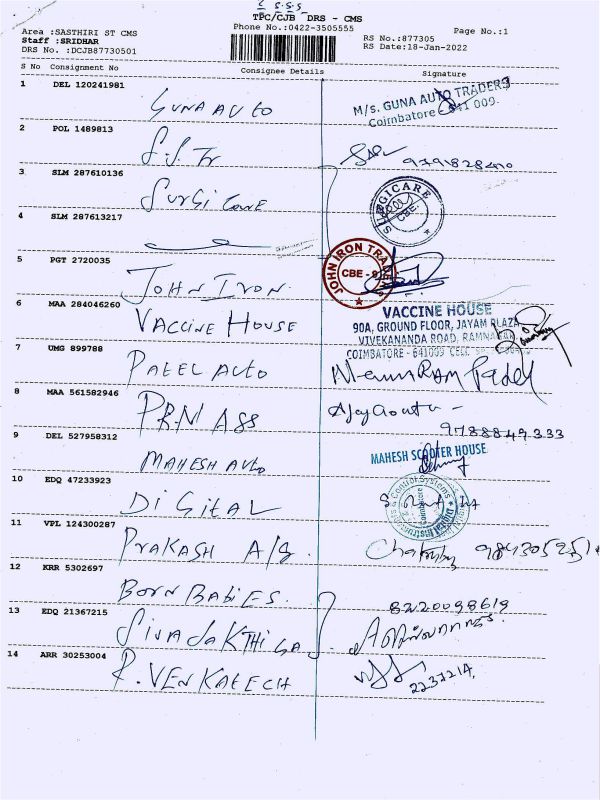 TPC/CJB DRS - CMS
Phone No.:0422-3505555
Area :SASTHIRI ST CMS
Staff :SRIDHAR
DRS No. :DCJB87730501
RS No.:877305
RS Date:18-Jan-2022
Page No.:1
S No Consignment No Consignee Details Signature
1 DEL 120241981 GUNA AUTO
M/s. GUNA AUTO TRADERS
Coimbatore - 641 009.
2 POL 1489813
3 SLM 287610136 Surgi Care
SURGICARE
CBE.
4 SLM 287613217
5 PGT 2720035 JOHN IRON.
JOHN IRON TRADERS
CBE - 9
6 MAA 284046260 VACCINE HOUSE
VACCINE HOUSE
90A, GROUND FLOOR, JAYAM PLAZA
VIVEKANANDA ROAD, RAMNAGAR,
COIMBATORE - 641009
7 UMG 899788 PATEL AUTO
8 MAA 561582946 PRN ASS
9788849333
9 DEL 527958312 MAHESH AUTO
MAHESH SCOOTER HOUSE
10 EDQ 47233923 DIGITAL
11 VPL 124300287 PRAKASH A/S.
12 KRR 5302697 BORN BABIES.
8220098619
13 EDQ 21367215
14 ARR 30253004 R. VENKATECH
2237214